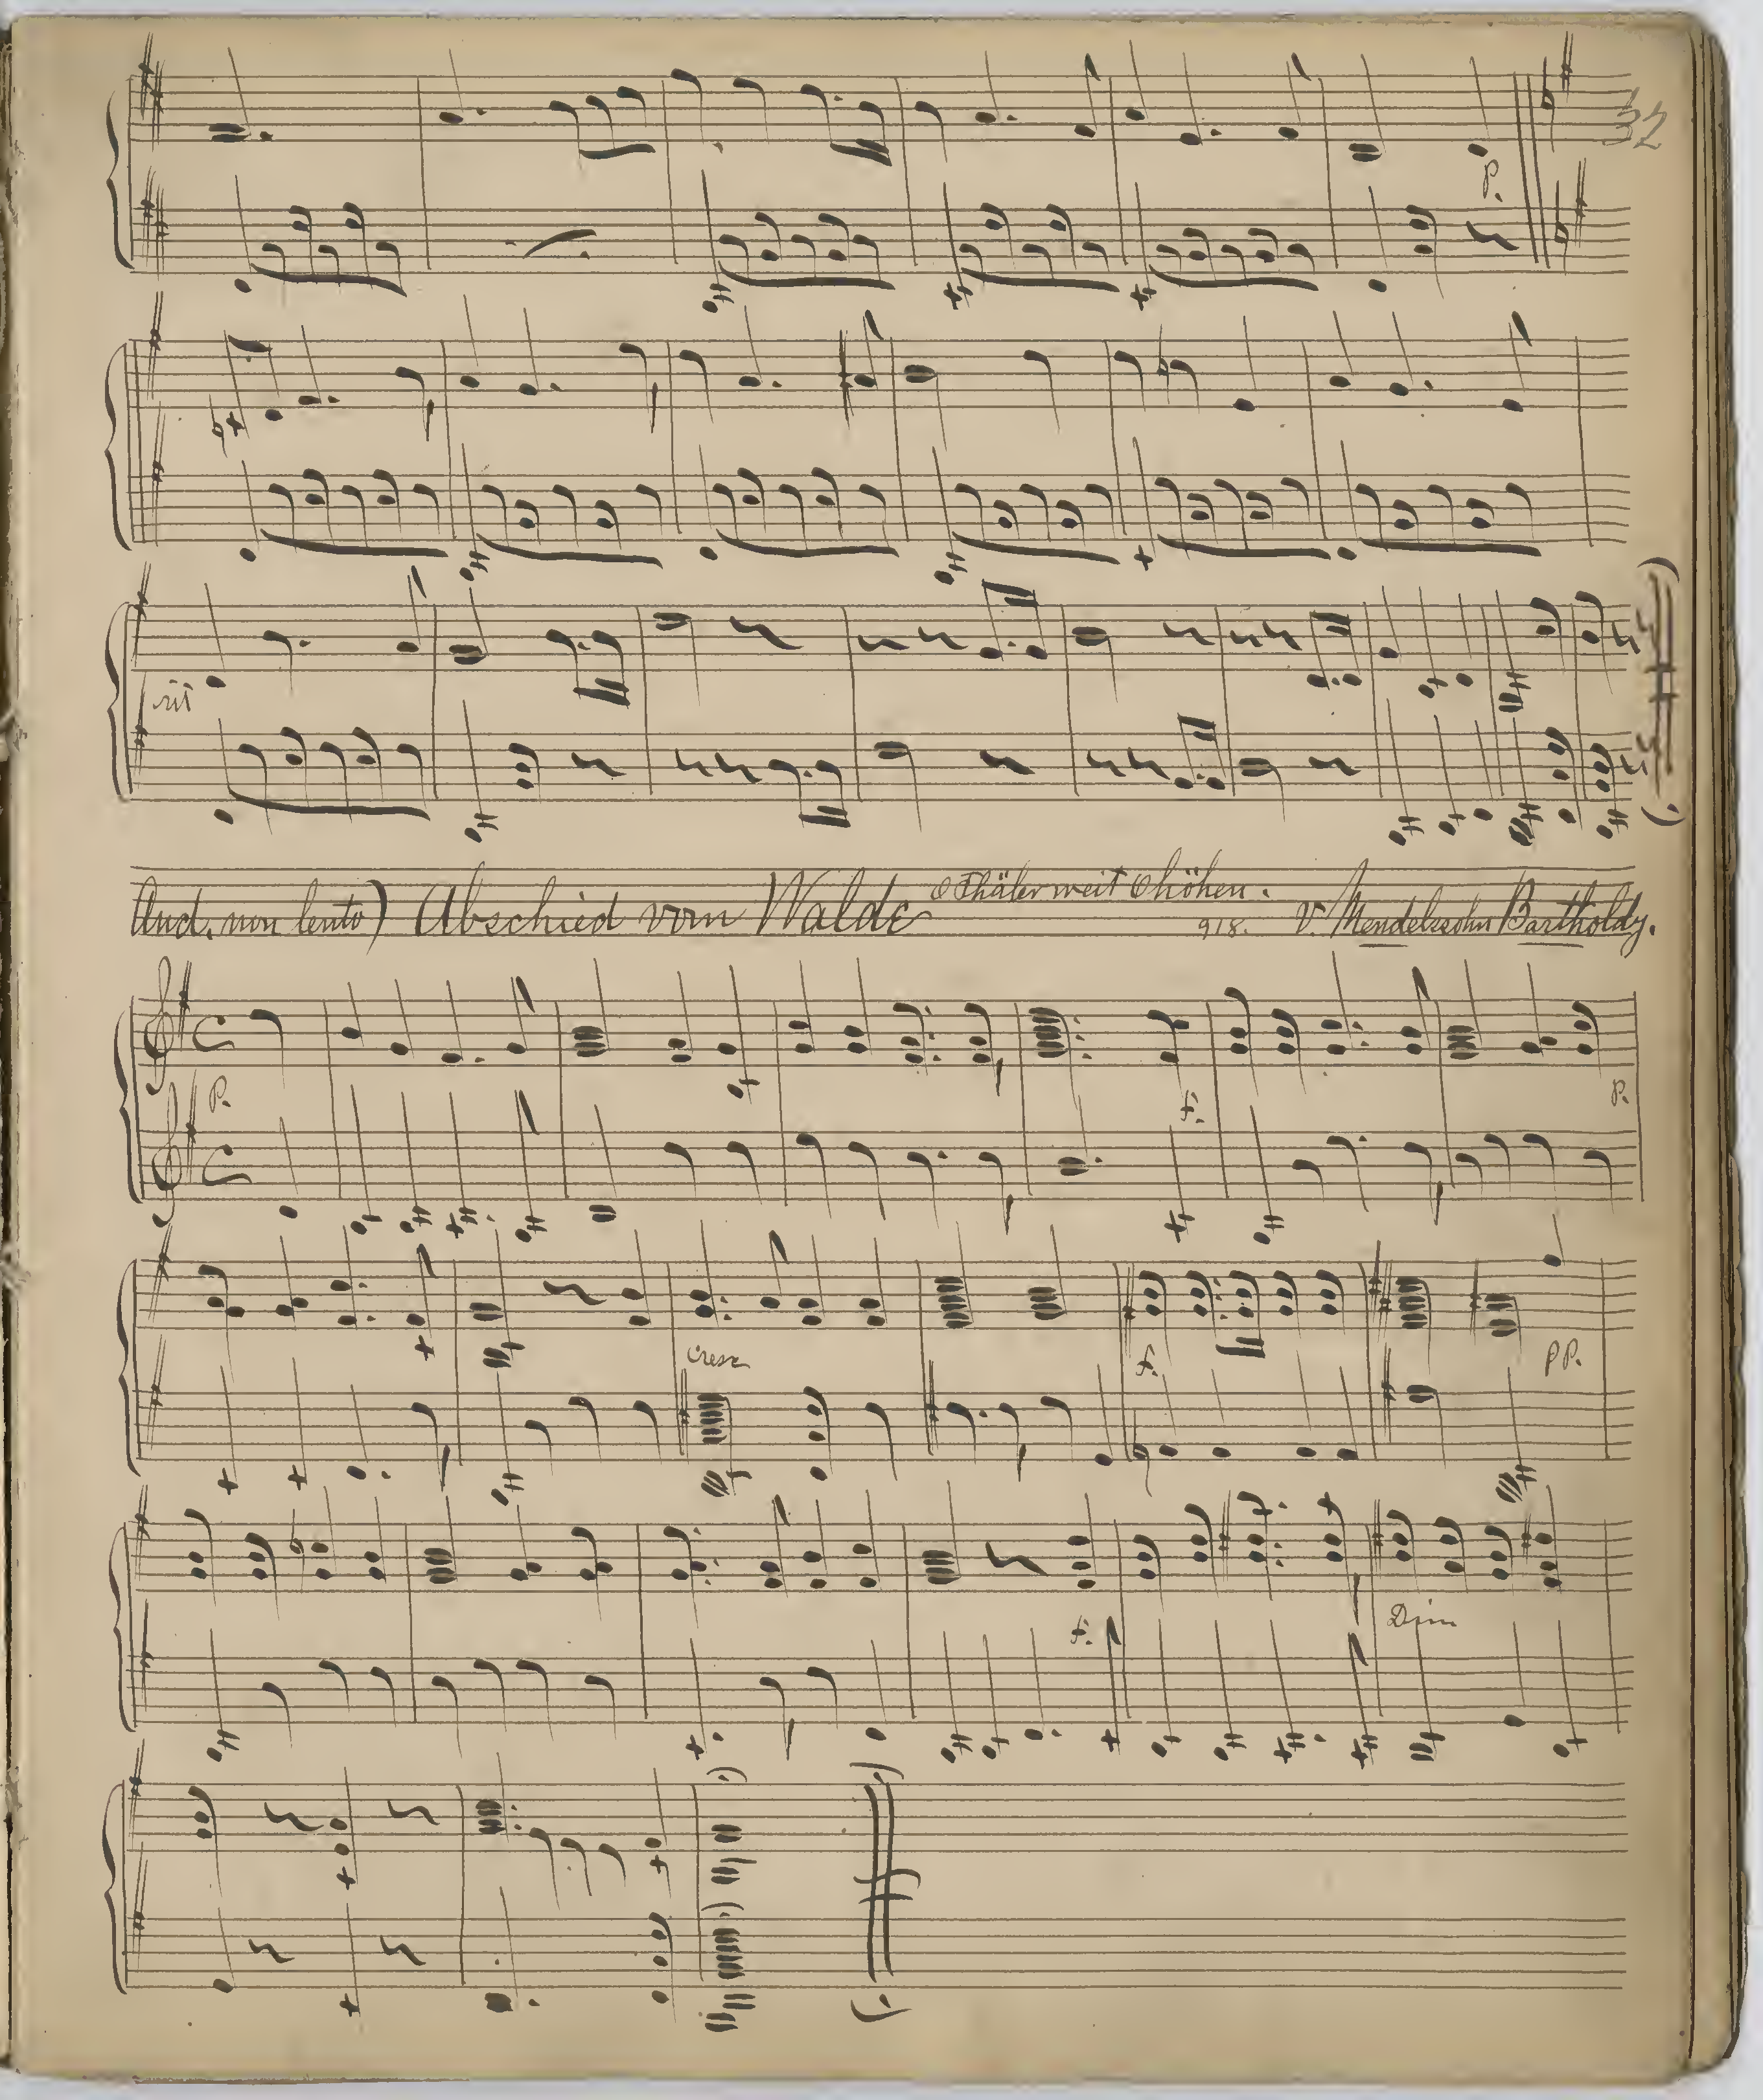 32
P.
rit
And. non lento) Abschied vom Walde O Thäler weit O höhen.
918. v. Mendelssohn Bartholdy.
P. F. P.
cresc F. PP.
F. Dim